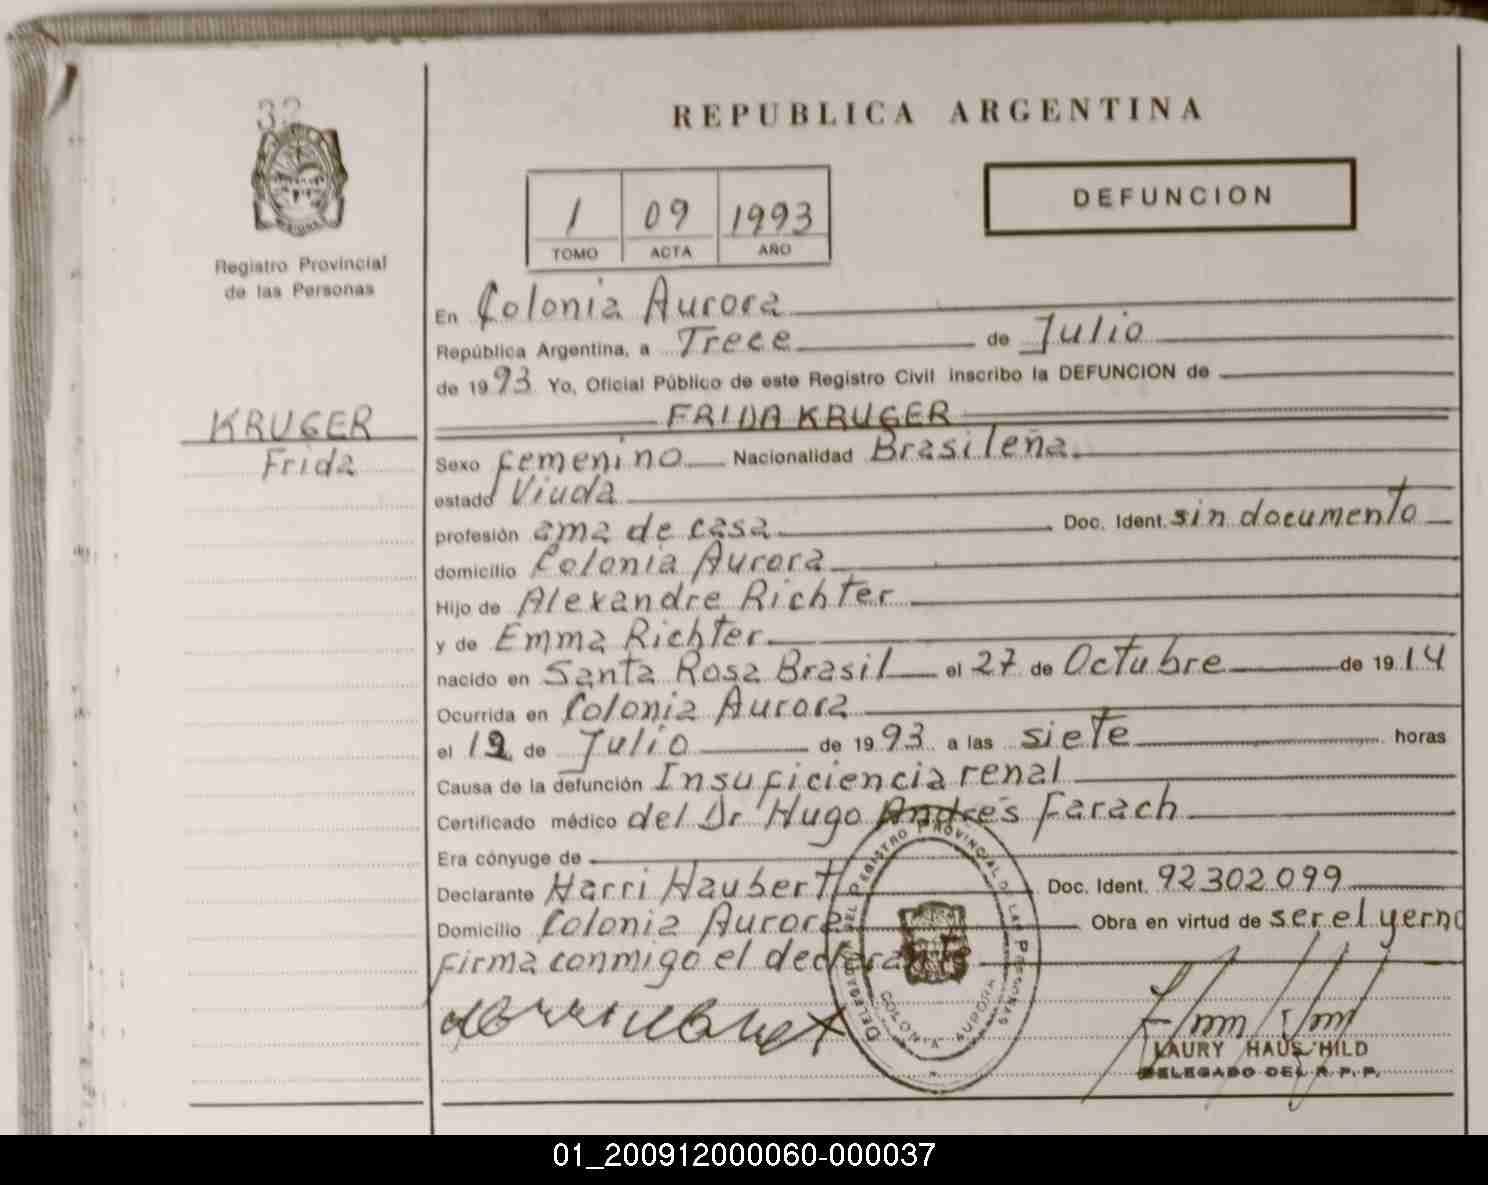 32
REPUBLICA ARGENTINA
1 09 1993
TOMO ACTA AÑO
DEFUNCION
Registro Provincial
de las Personas
En Colonia Aurora
República Argentina, a Trece de Julio
de 1993 Yo, Oficial Público de este Registro Civil inscribo la DEFUNCION de
FRIDA KRUGER
KRUGER
Frida
Sexo femenino Nacionalidad Brasileña
estado Viuda
profesión ama de casa Doc. Ident. sin documento
domicilio Colonia Aurora
Hijo de Alexandre Richter
y de Emma Richter
nacido en Santa Rosa Brasil el 27 de Octubre de 1914
Ocurrida en Colonia Aurora
el 12 de Julio de 1993 a las siete horas
Causa de la defunción Insuficiencia renal
Certificado médico del Dr Hugo Andrés Farach
Era cónyuge de
Declarante Harri Haubert Doc. Ident. 92302099
Domicilio Colonia Aurora Obra en virtud de ser el yerno
firma conmigo el declarante
DELEGADO DEL REGISTRO PROVINCIAL D LAS PERSONAS
COLONIA AURORA
LAURY HAUS HILD
DELEGADO DEL R. P. P.
01_200912000060-000037